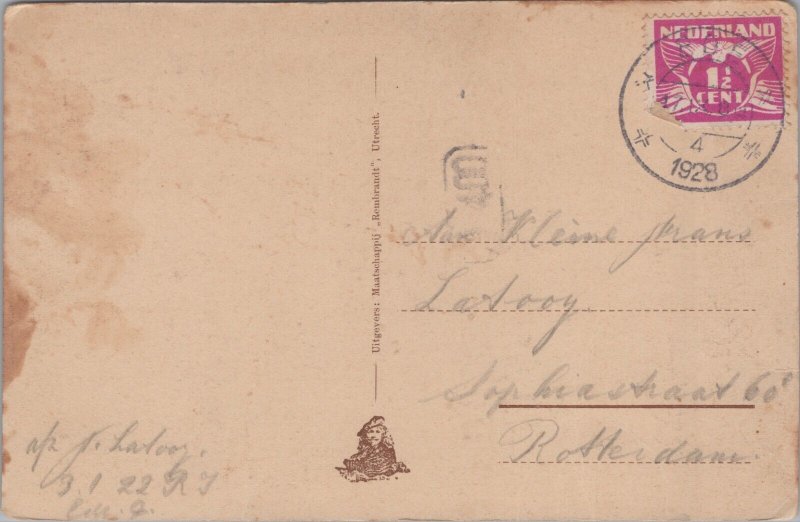 NEDERLAND
1½
CENT
4
1928
Aan Kleine Frans
Latooy.
Sophiastraat 60
Rotterdam.
Uitgevers: Maatschappij „Rembrandt", Utrecht.
afz J. Latooy.
3 1 22 R I